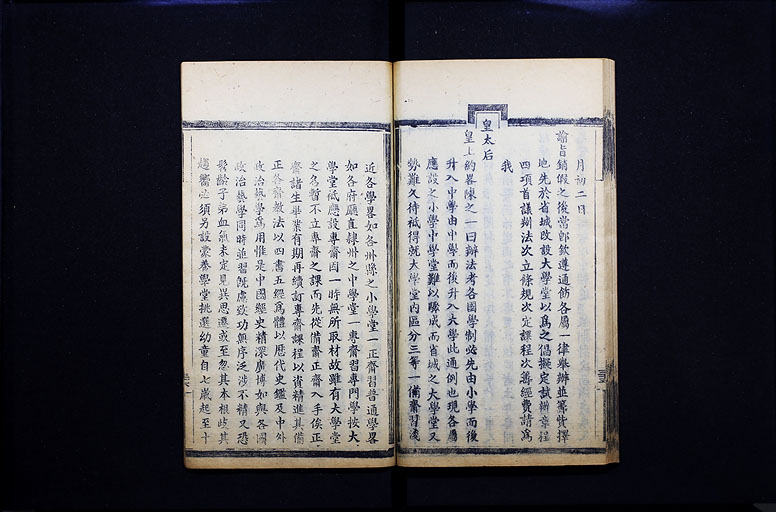 月初二日
諭旨銷假之後當即欽遵通飭各屬一律舉辦並籌費擇
地先於省城改設大學堂以為之倡擬定試辦章程
四項首議辦法次立條規次定課程次籌經費請為
我
皇太后
皇上約畧陳之一曰辦法考各國學制必先由小學而後
升入中學由中學而後升入大學此通例也現各屬
應設之小學中學堂難以驟成而省城之大學堂又
勢難久待祗得就大學堂內區分三等一備齋習淺
近各學畧如各州縣之小學堂一正齋習普通學畧
如各府廳直隸州之中學堂一專齋習專門學按大
學堂祗應設專齋因一時無所取材故雖有大學堂
之名暫不立專齋之課而先從備齋正齋入手俟正
齋諸生畢業有期再續訂專齋課程以資精進其備
正各齋教法以四書五經為體以歷代史鑑及中外
政治藝學為用惟是中國經史精深廣博如與各國
政治藝學同時並習既慮致功無序泛涉不精又恐
髫齡子弟血氣未定見異思遷或至忽其本根歧其
趨嚮必須另設蒙養學堂挑選幼童自七歲起至十